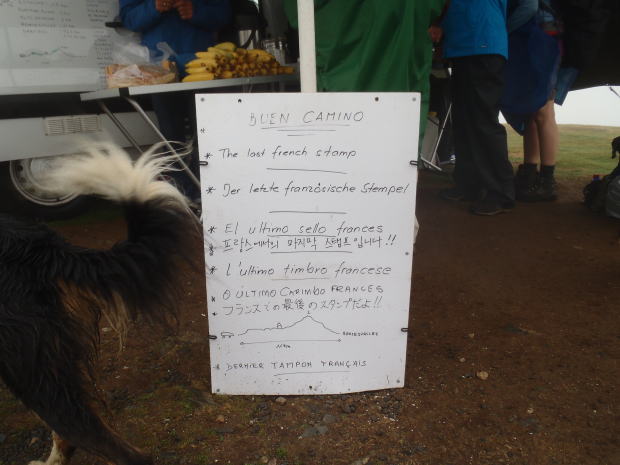 BUEN CAMINO
* The last french stamp
* Der letzte französische Stempel
* El ultimo sello frances
* 프랑스에서의 마지막 스탬프입니다!!
* L'ultimo timbro francese
* O ÚLTIMO CARIMBO FRANCES
フランスでの最後のスタンプだよ!!
* DERNIER TAMPON FRANÇAIS